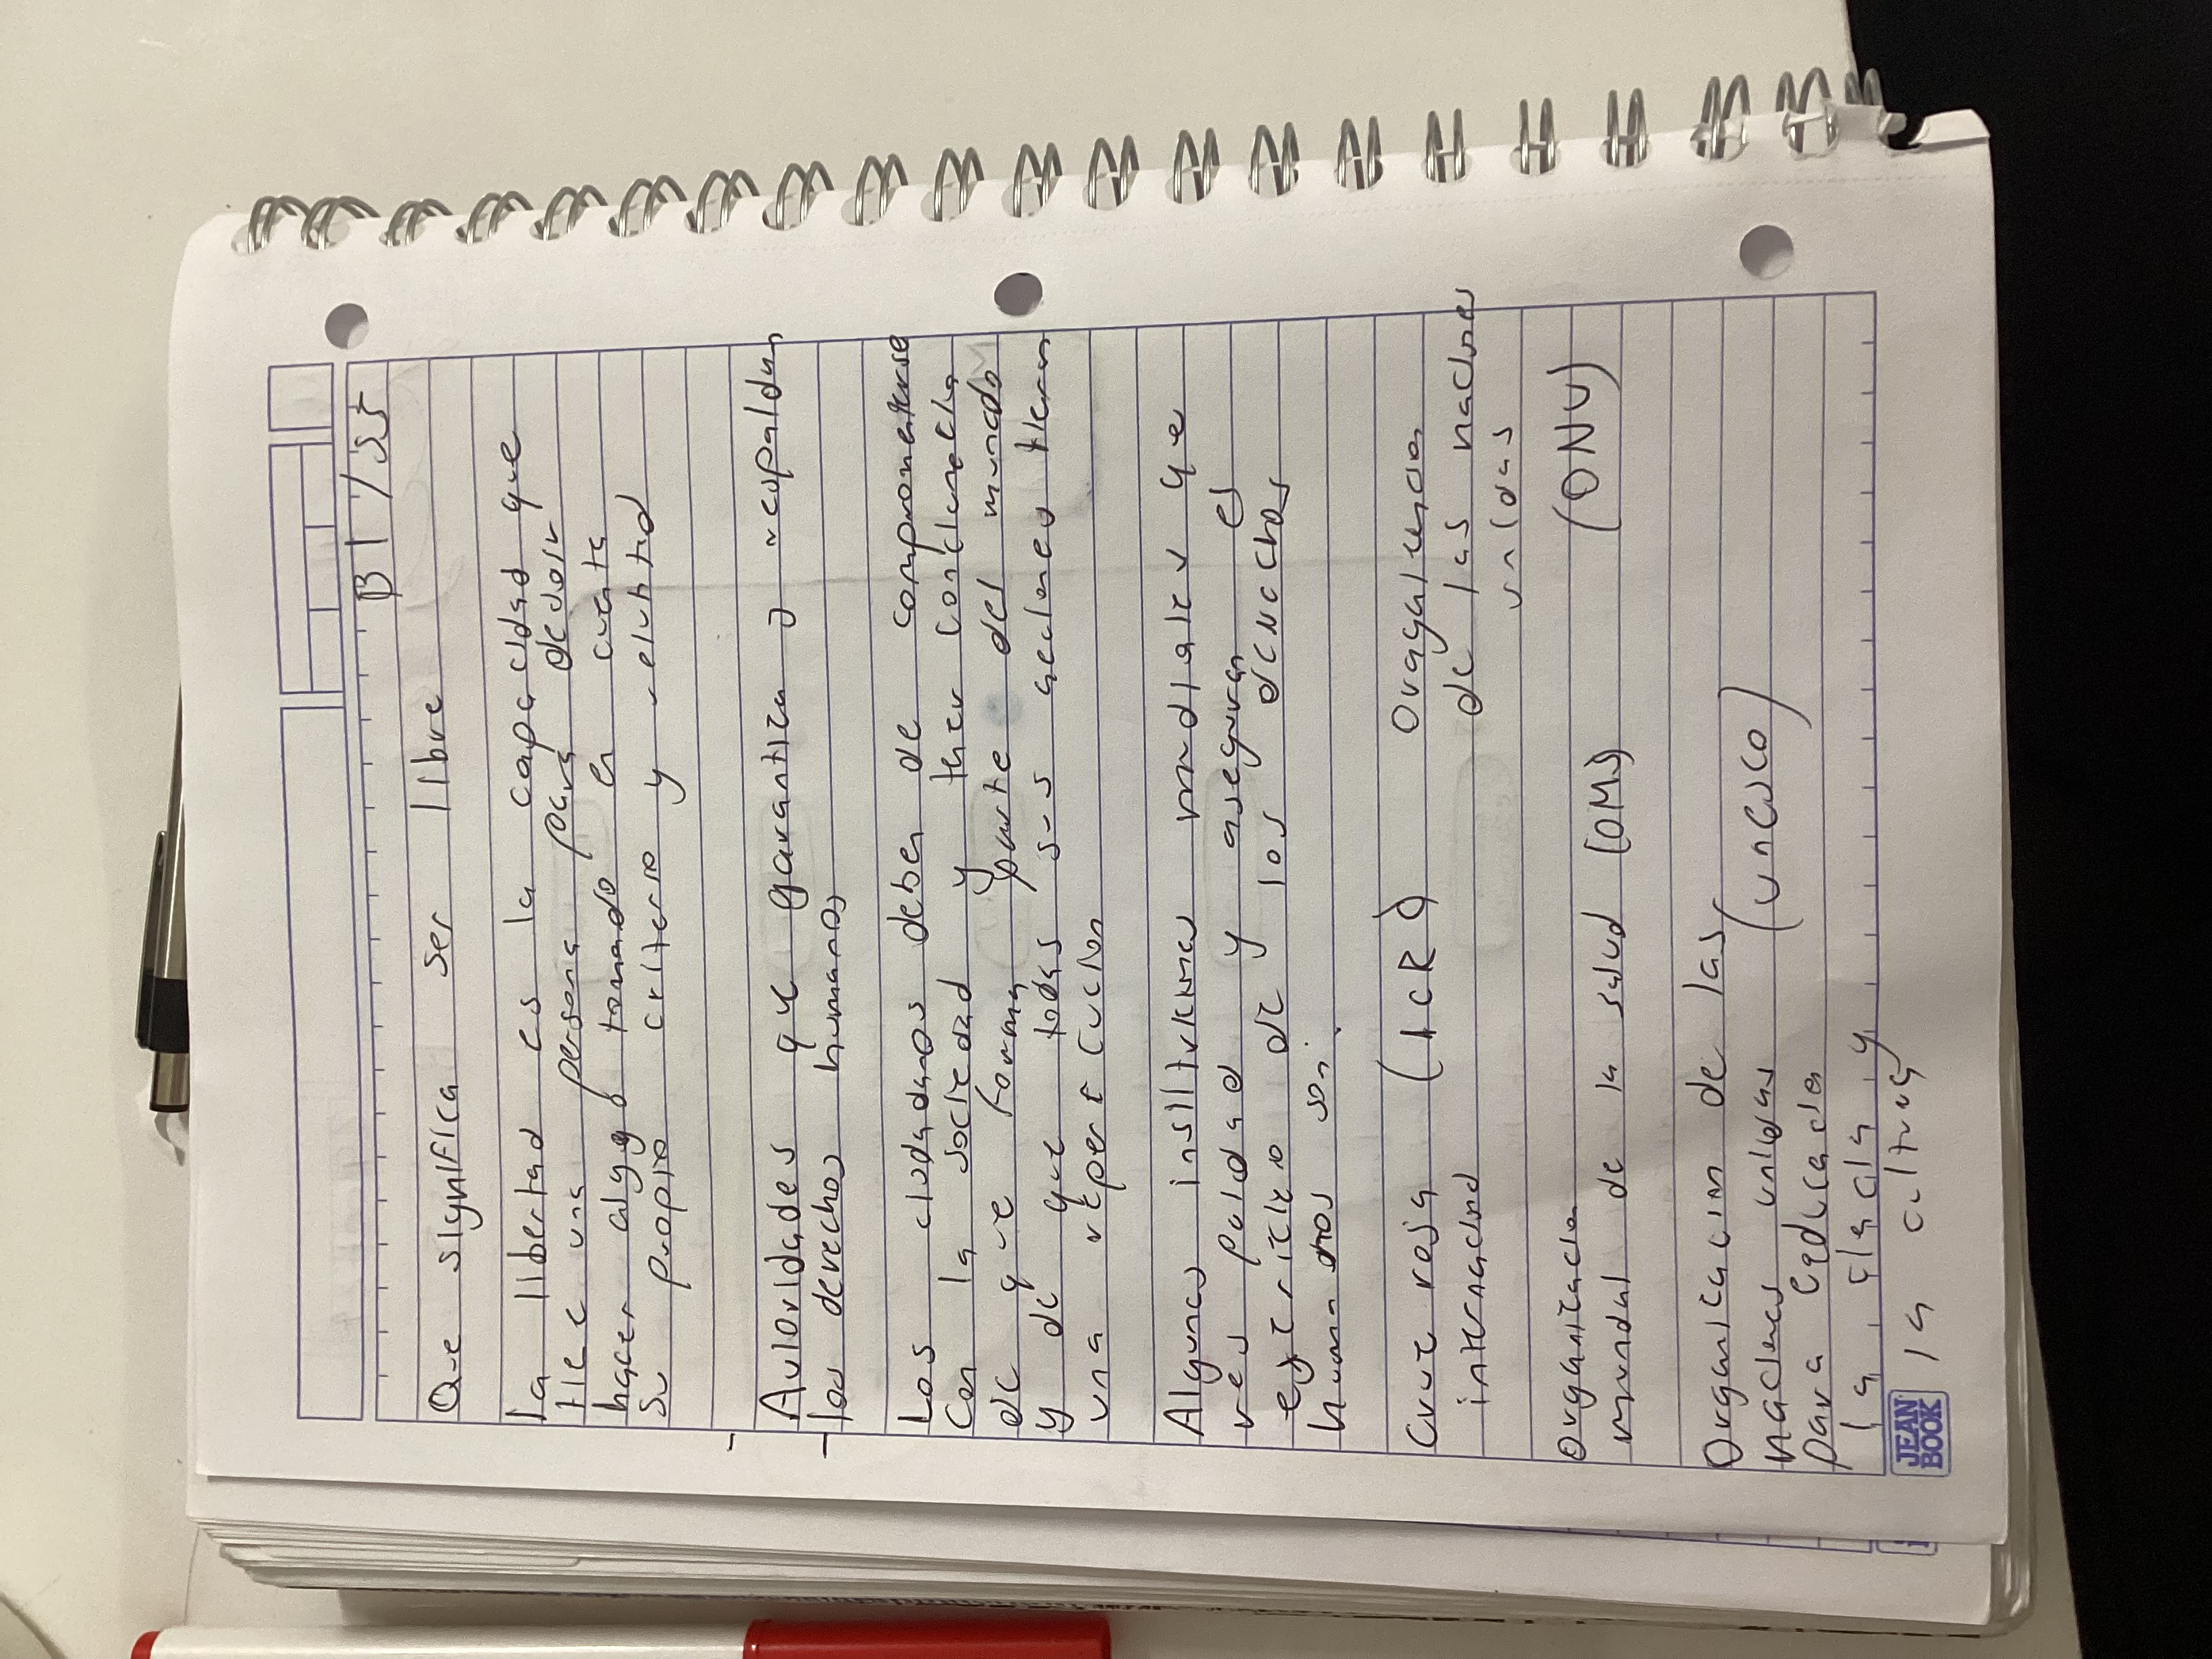 B1/55
Que significa ser libre
la libertad es la capacidad que
tiene una persona para decidir
hacer algo tomado en cuenta
su propio criterio y
Autoridades que garantiza y respaldan
los derechos humanos
Los ciudadanos deben de
con la sociedad y tner conciencia
de que forma parte del mundo
y de que todas sus acciones tienen
una repercucion
Algunas mundiales que
respaldad y aseguran el
de los derechos
humanos son:
Cruz roja (ICR)
internacional
de las naciones
unidas
(ONU)
Organizacion
mundial de la salud (OMS)
Organizacion de las
naciones unidas (unesco)
para
la ciencia y
la cultura
JEAN
BOOK